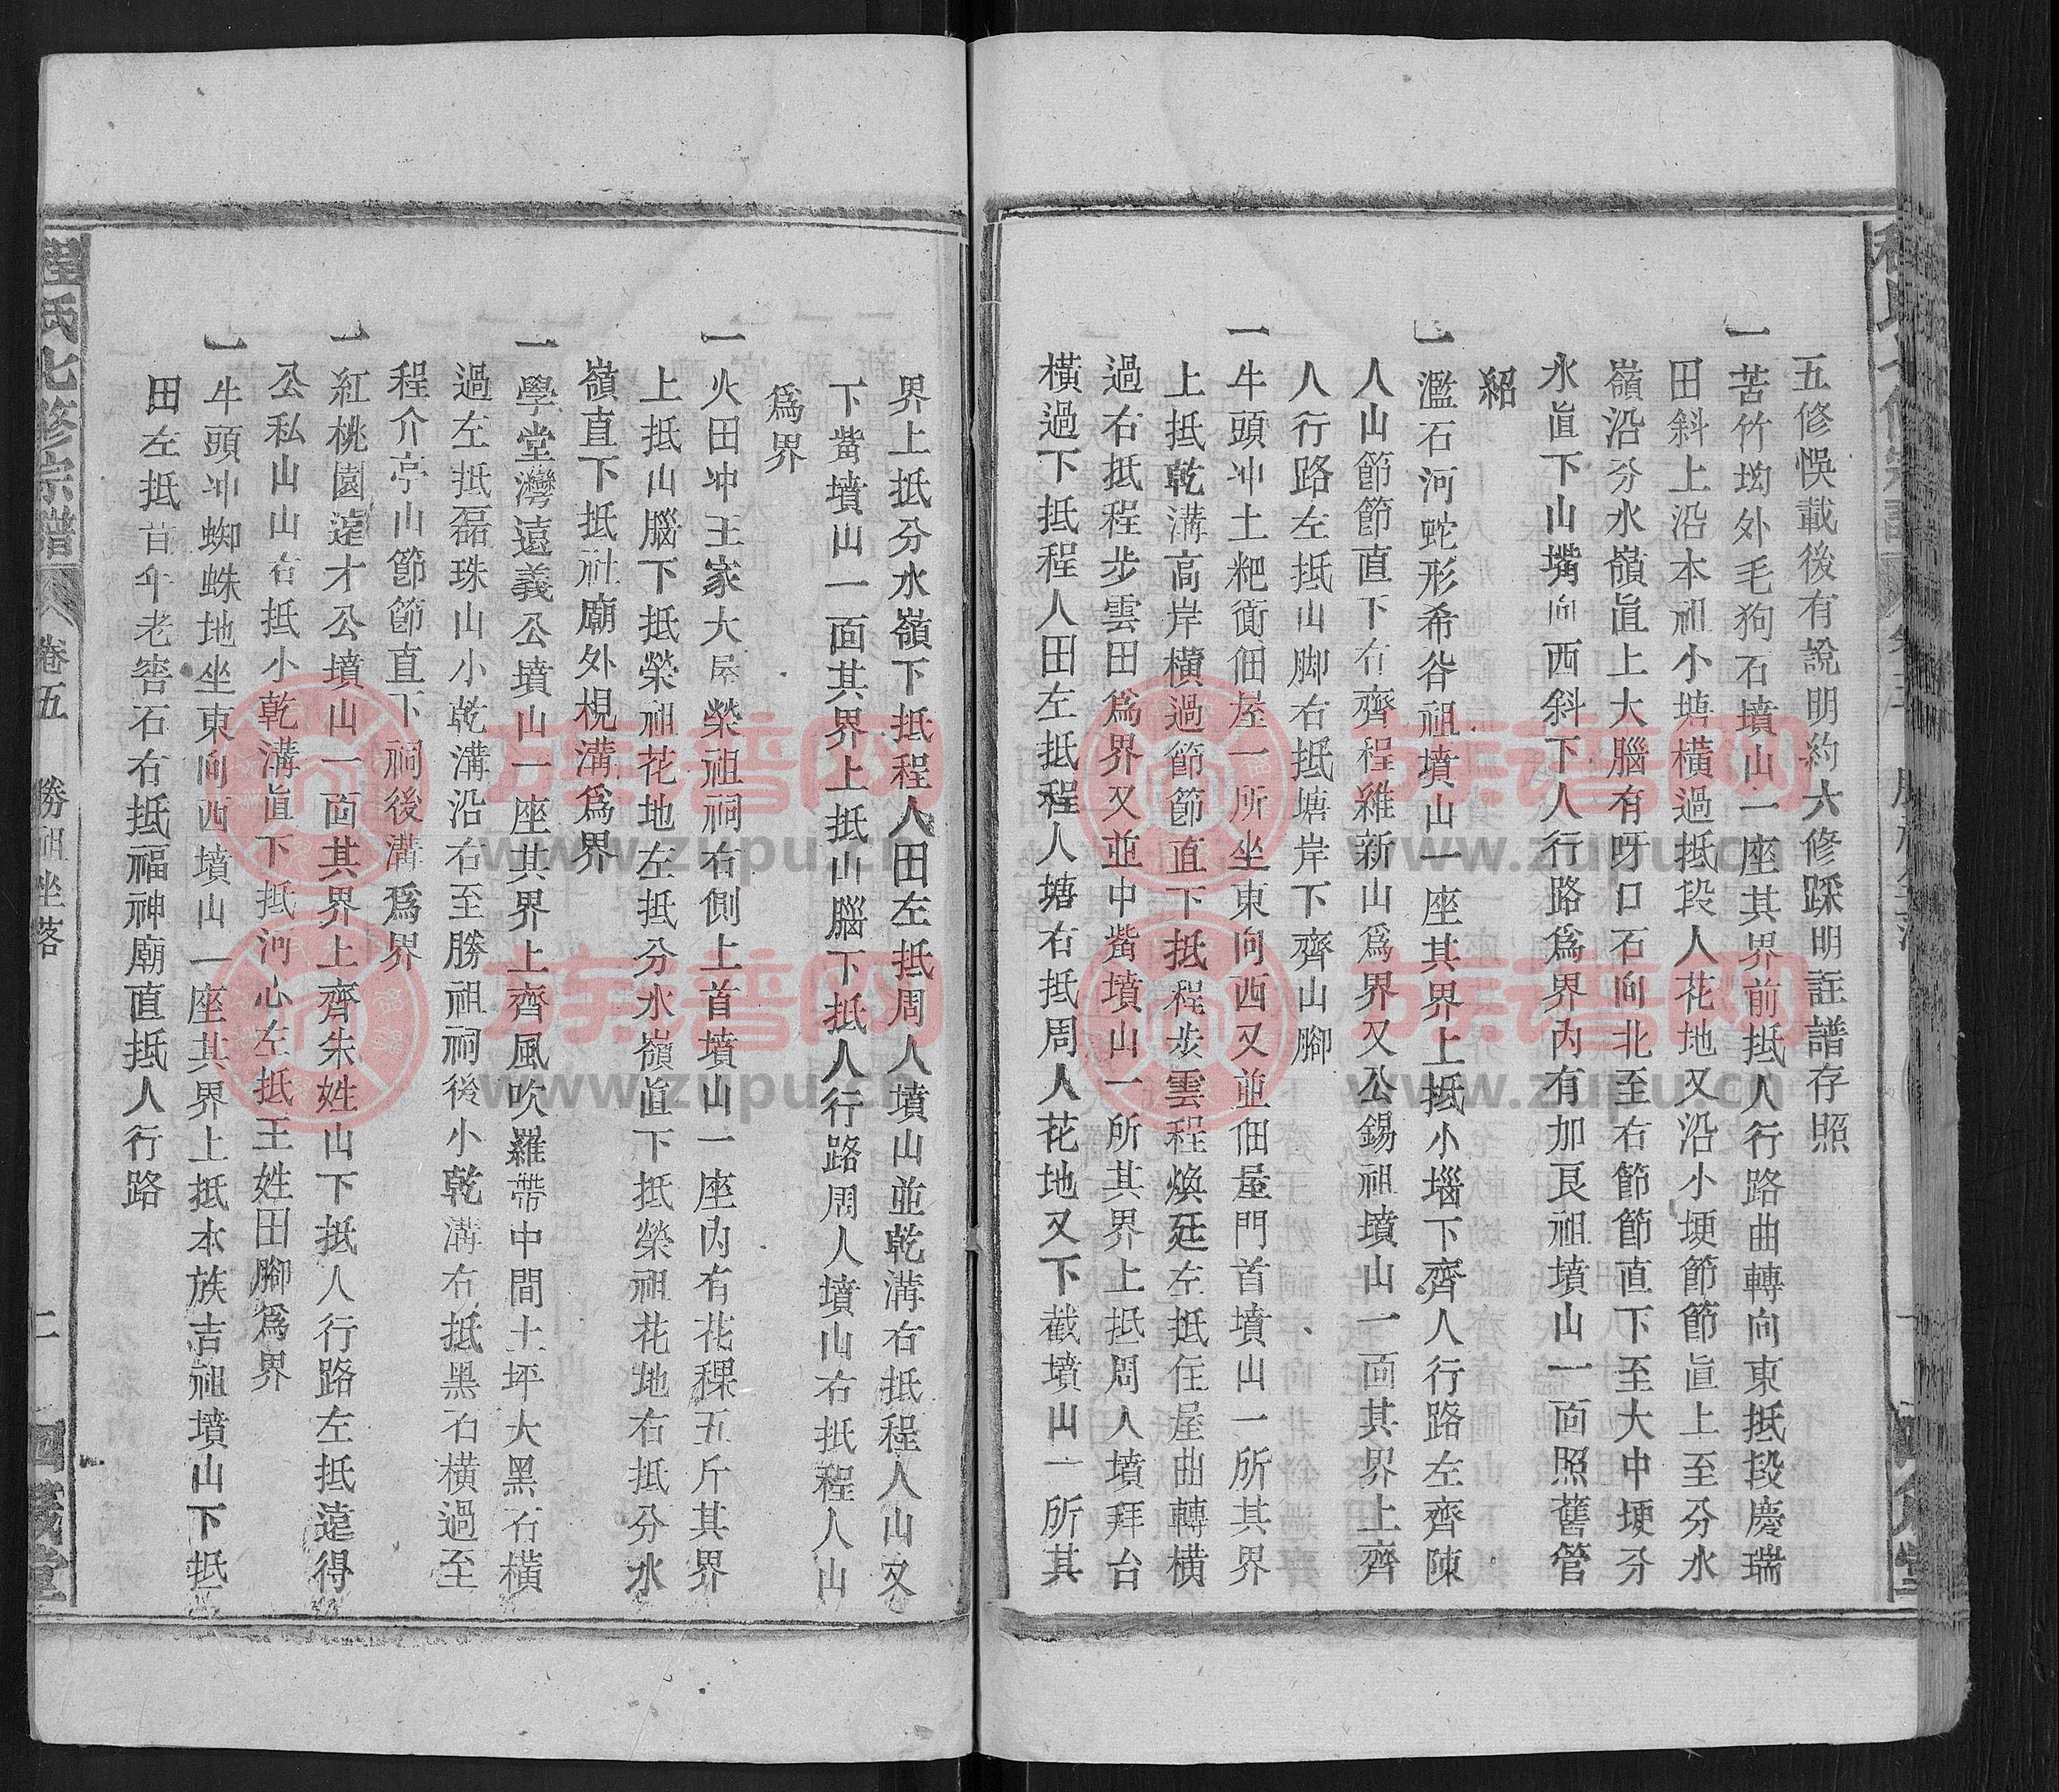 五修悞載後有說明約六修踩明註譜存照
一苦竹坳外毛狗石墳山一座其界前抵人行路曲轉向東抵段慶瑞
田斜上沿本祖小塘橫過抵段人花地又沿小埂節節直上至分水
嶺沿分水嶺直上大腦有呀口石向北至右節節直下至大中埂分
水直下山嘴向西斜下人行路為界內有加艮祖墳山一面照舊管
紹
一濫石河蛇形希谷祖墳山一座其界上抵小堖下齊人行路左齊陳
人山節節直下右齊程維新山為界又公錫祖墳山一面其界上齊
人行路左抵山腳右抵塘岸下齊山腳
一牛頭冲土粑衝佃屋一所坐東向西又並佃屋門首墳山一所其界
上抵乾溝高岸橫過節節直下抵程步雲程煥廷左抵住屋曲轉橫
過右抵程步雲田為界又並中觜墳山一所其界上抵周人墳拜台
橫過下抵程人田左抵程人塘右抵周人花地又下截墳山一所其
界上抵分水嶺下抵程人田左抵周人墳山並乾溝右抵程人山又
下觜墳山一面其界上抵山腦下抵人行路周人墳山右抵程人山
為界
一火田冲王家大屋榮祖祠右側上首墳山一座內有花稞五斤其界
上抵山腦下抵榮祖花地左抵分水嶺直下抵榮祖花地右抵分水
嶺直下抵社廟外梘溝為界
一學堂灣遠義公墳山一座其界上齊風吹羅帶中間土坪大黑石橫
過左抵磊珠山小乾溝沿右至勝祖祠後小乾溝右抵黑石橫過至
程介亭山節節直下祠後溝為界
一紅桃園遠才公墳山一面其界上齊朱姓山下抵人行路左抵遠得
公私山山右抵小乾溝直下抵河心左抵王姓田腳為界
一牛頭冲蜘蛛地坐東向西墳山一座其界上抵本族吉祖墳山下抵
田左抵百年老窖石右抵福神廟直抵人行路
程氏七修宗譜
卷五
勝祖坐落
二
義堂